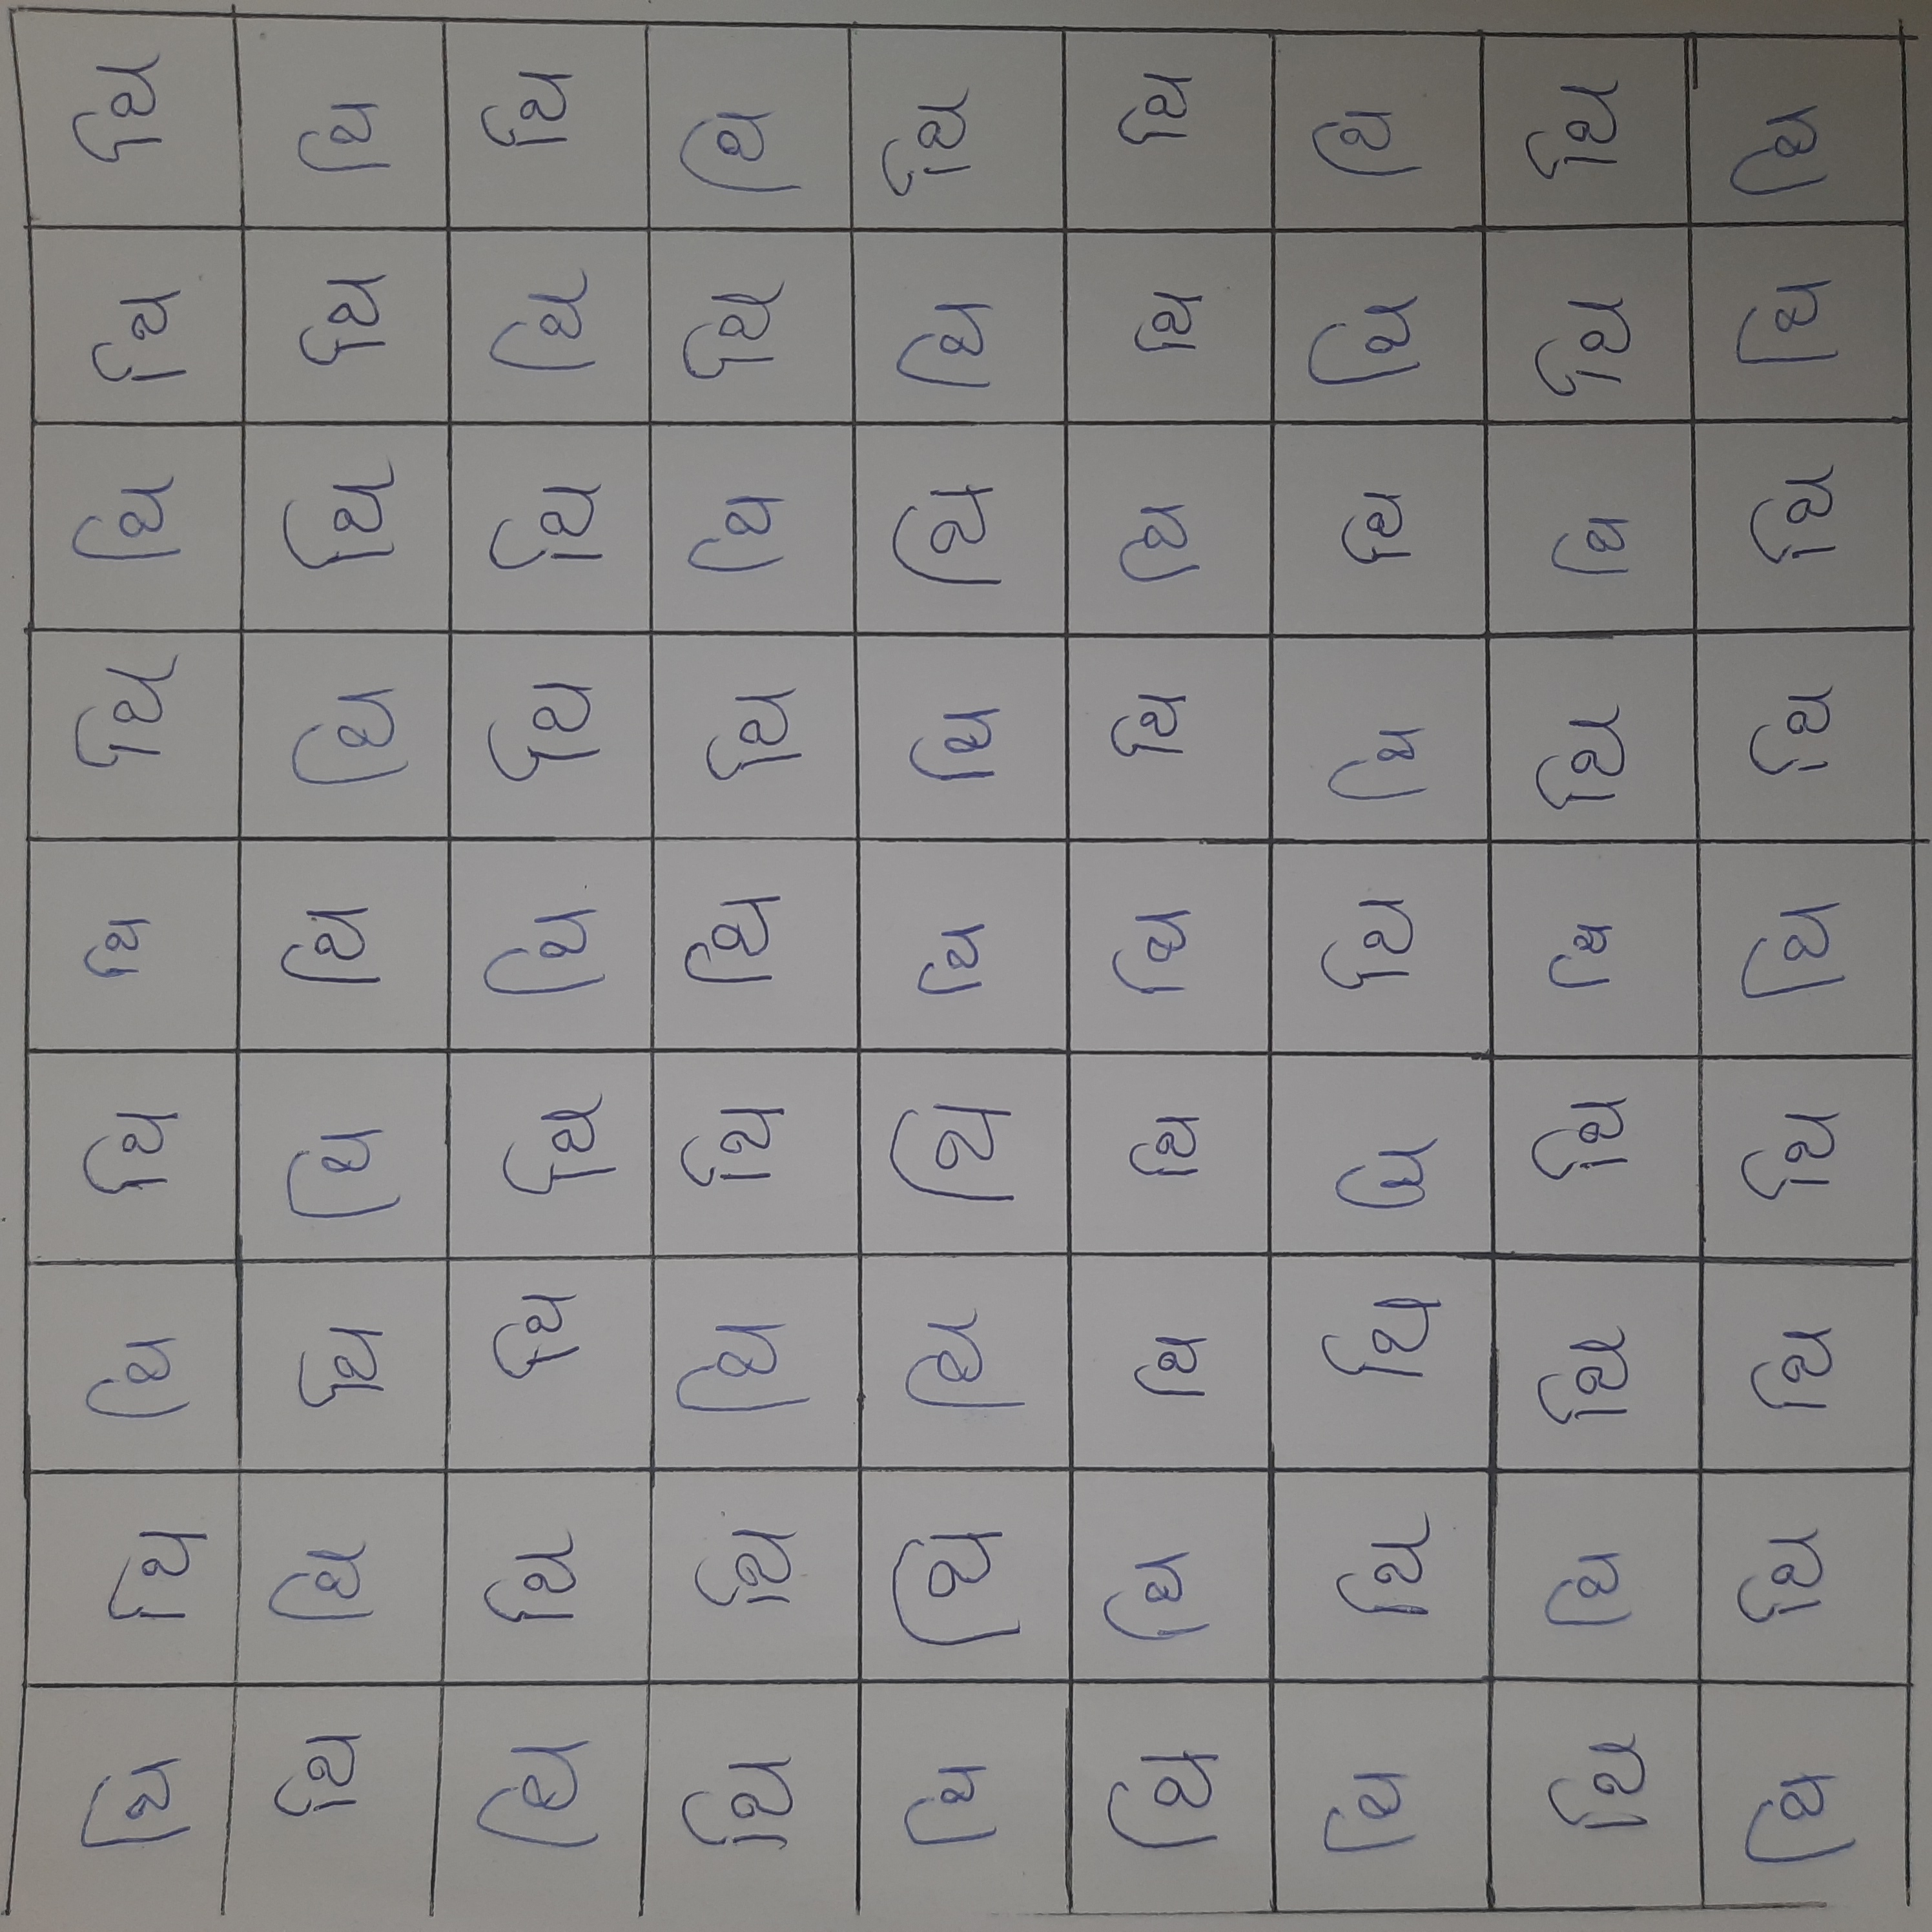 થિ થિ થિ થિ થિ થિ થિ થિ થિ
થિ થિ થિ થિ થિ થિ થિ થિ થિ
થિ થિ થિ થિ થિ થિ થિ થિ થિ
થિ થિ થિ થિ થિ થિ થિ થિ થિ
થિ થિ થિ થિ થિ થિ થિ થિ થિ
થિ થિ થિ થિ થિ થિ થિ થિ થિ
થિ થિ થિ થિ થિ થિ થિ થિ થિ
થિ થિ થિ થિ થિ થિ થિ થિ થિ
થિ થિ થિ થિ થિ થિ થિ થિ થિ